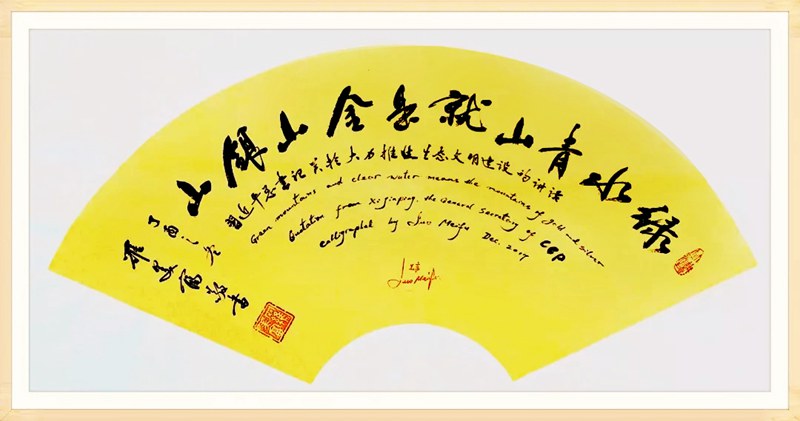 绿水青山就是金山银山
習近平总书记关於大力推進生态文明建设的讲话
Green mountains and clear water means the mountains of gold and silver
Quotation from Xi Jinping, the General Secretary of CCP
Calligraphed by Luo Meifu Dec. 2017
丁酉之冬
Luo Meifu